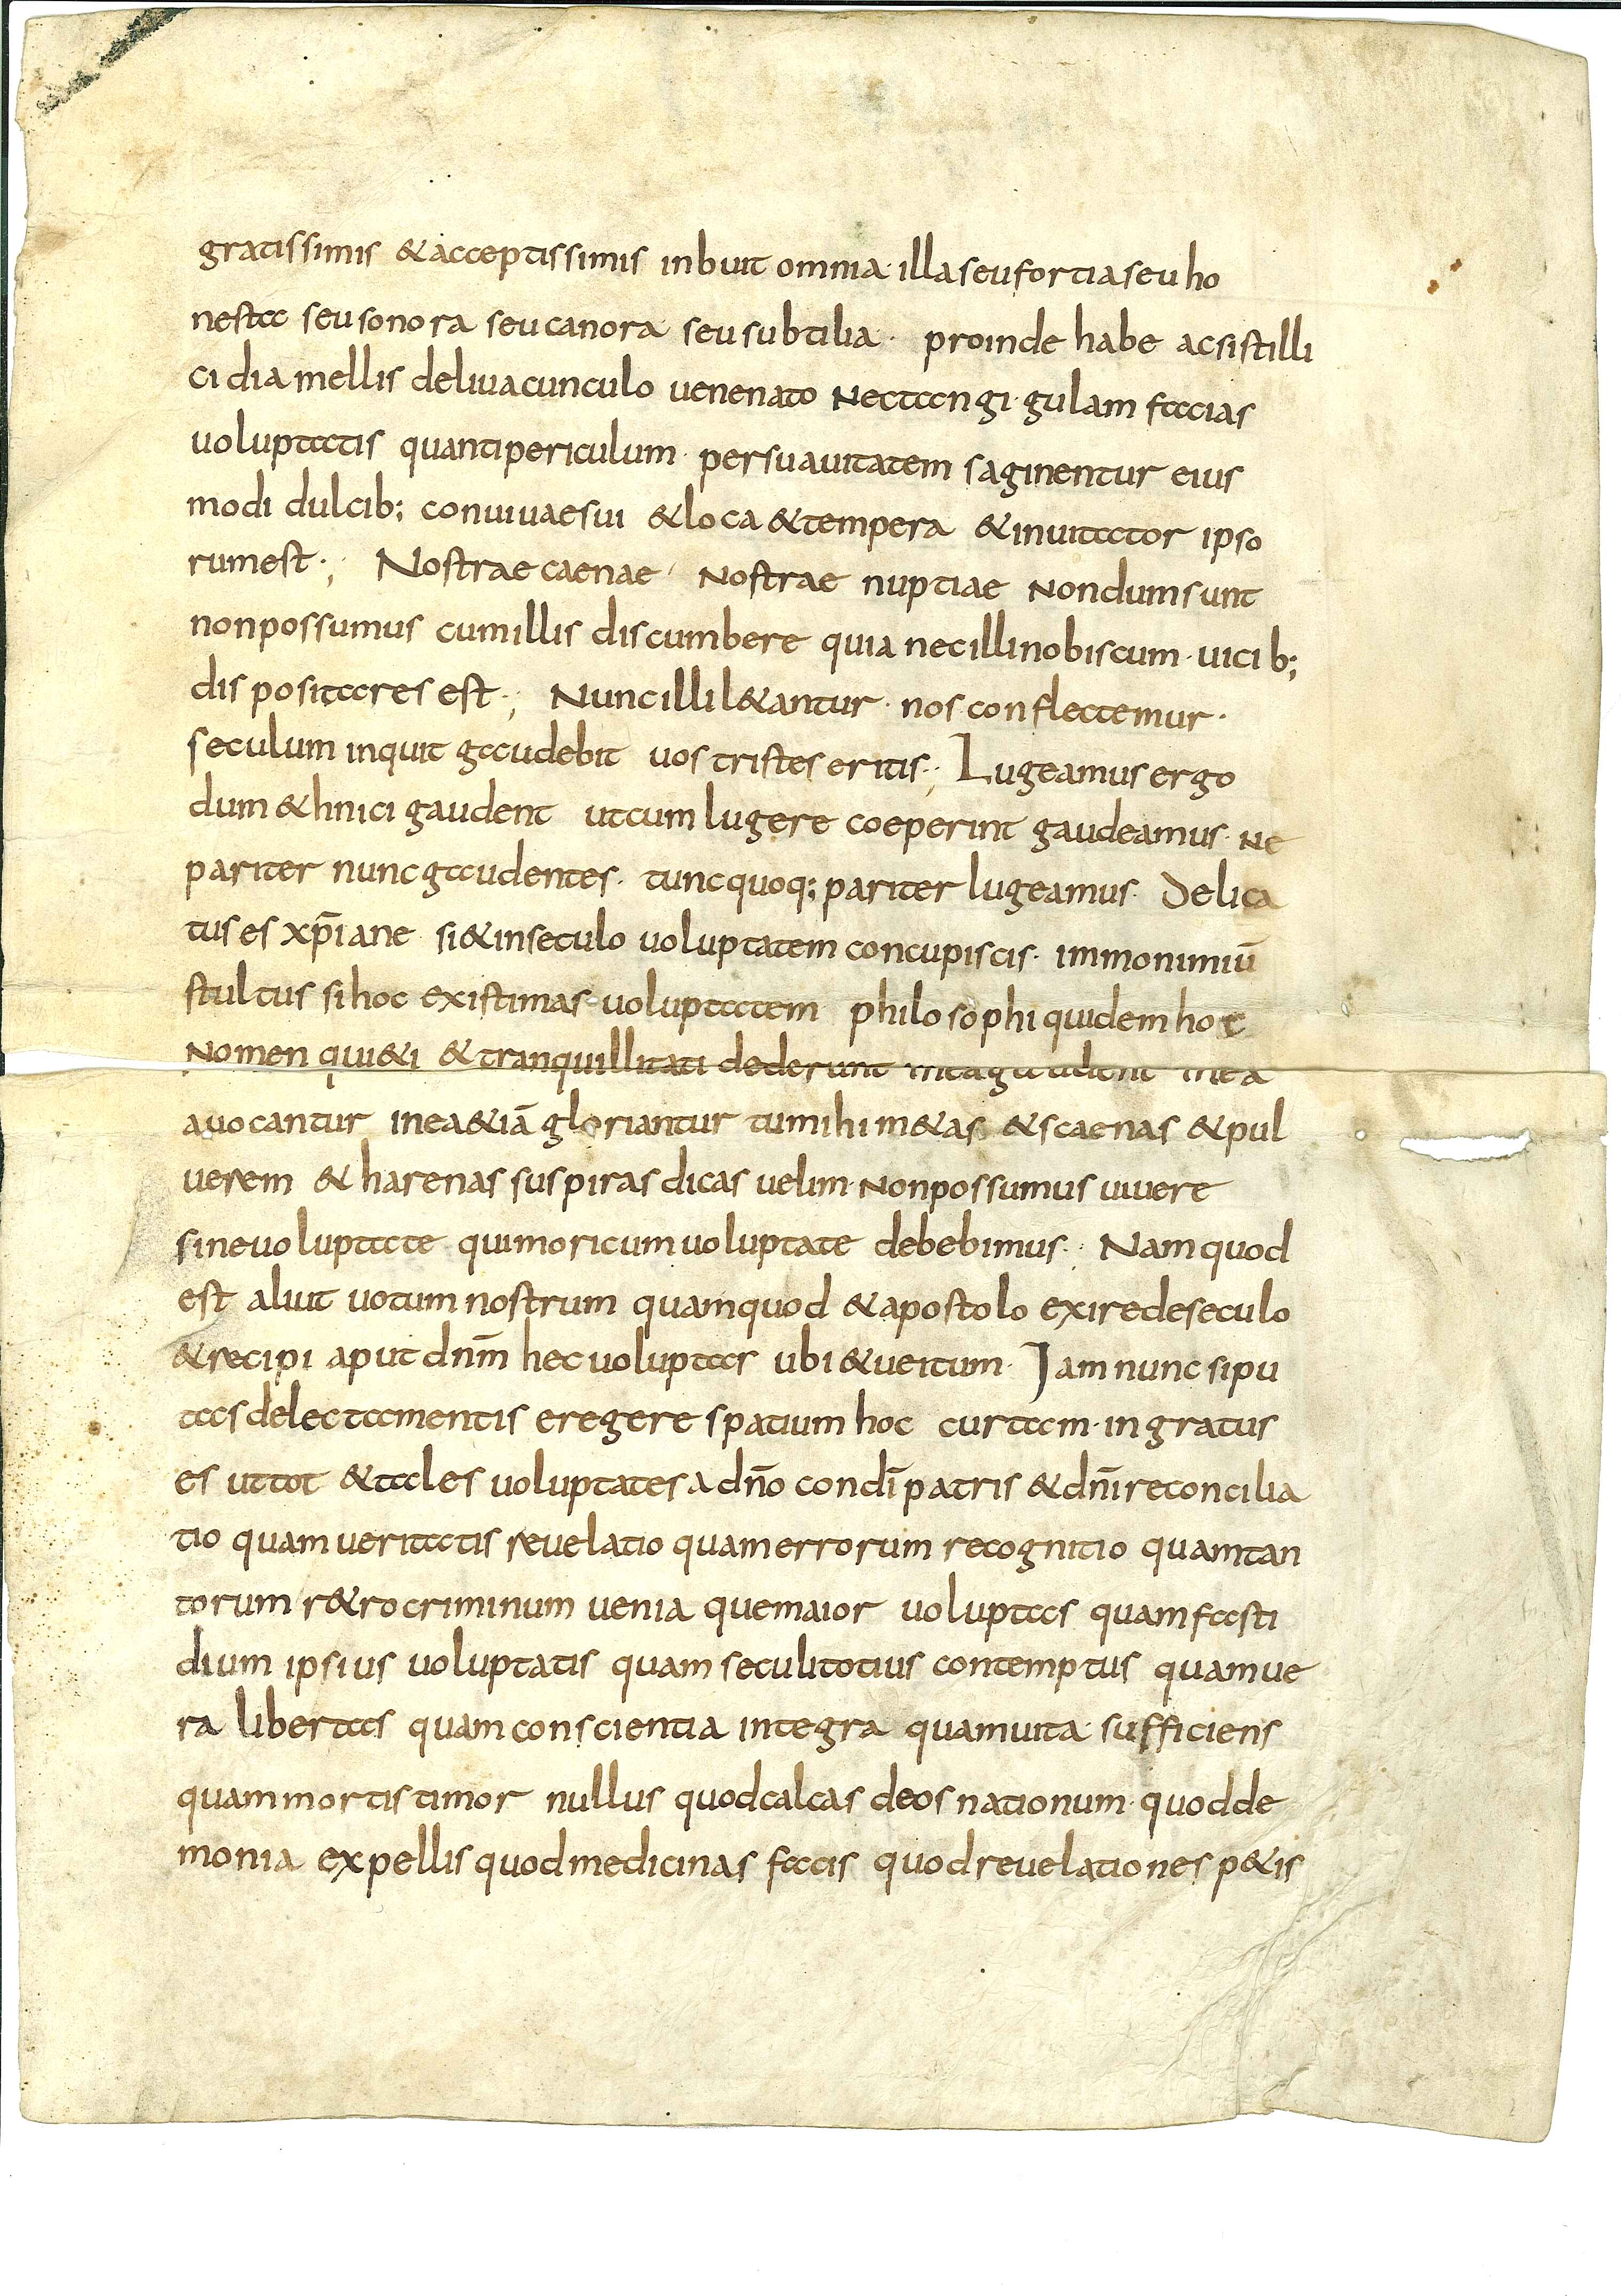 gratissimis & acceptissimis inbuit omnia · illa seu fortia seu ho
nesta seu sonora seu canora seu subtilia · proinde habe ac si stilli
cidia mellis de liuacunculo uenenato Nec tangi · gulam facias
uoluptatis quanti periculum · per suauitatem saginentur eius
modi dulcib; conuiuae sui & loca & tempera & inuitator ipso
rum est ·; Nostrae caenae · Nostrae nuptiae Nondum sunt
non possumus cum illis discumbere quia nec illi nobiscum · uicib;
disposita res est ·; Nunc illi l&antur · nos conflectemur ·
seculum inquit gaudebit uos tristes eritis ·; Lugeamus ergo
dum &hnici gaudent ut cum lugere coeperint gaudeamus · Ne
pariter nunc gaudentes · tunc quoq; pariter lugeamus · Delica
tus es xp̄iane si & in seculo uoluptatem concupiscis · immo nimiū
stultus si hoc existimas uoluptatem philosophi quidem hoc
Nomen qui&i & tranquillitati dederunt in ea gaudent in ea
auocantur in ea &iā gloriantur tu mihi m&as & scaenas & pul
uerem & harenas suspiras dicas uelim · Non possumus uiuere
sine uoluptate qui mori cum uoluptate debebimus ·; Nam quod
est aliut uotum nostrum quam quod & apostolo exire de seculo
& recipi aput dn̄m hec uoluptas ubi & ueitum · Iam nunc si pu
tas delectamentis eregere spatium hoc cur tam · ingratus
es ut tot & tales uoluptates a dn̄o con dī patris & dn̄i reconcilia
tio quam ueritatis reuelatio quam errorum recognitio quam tan
torum r&ro criminum uenia que maior uoluptas quam fasti
dium ipsius uoluptatis quam seculi totius contemptus quam ue
ra libertas quam conscientia integra quam uita sufficiens
quam mortis timor nullus quod calcas deos nationum · quod de
monia expellis quod medicinas facis quod reuelationes p&is